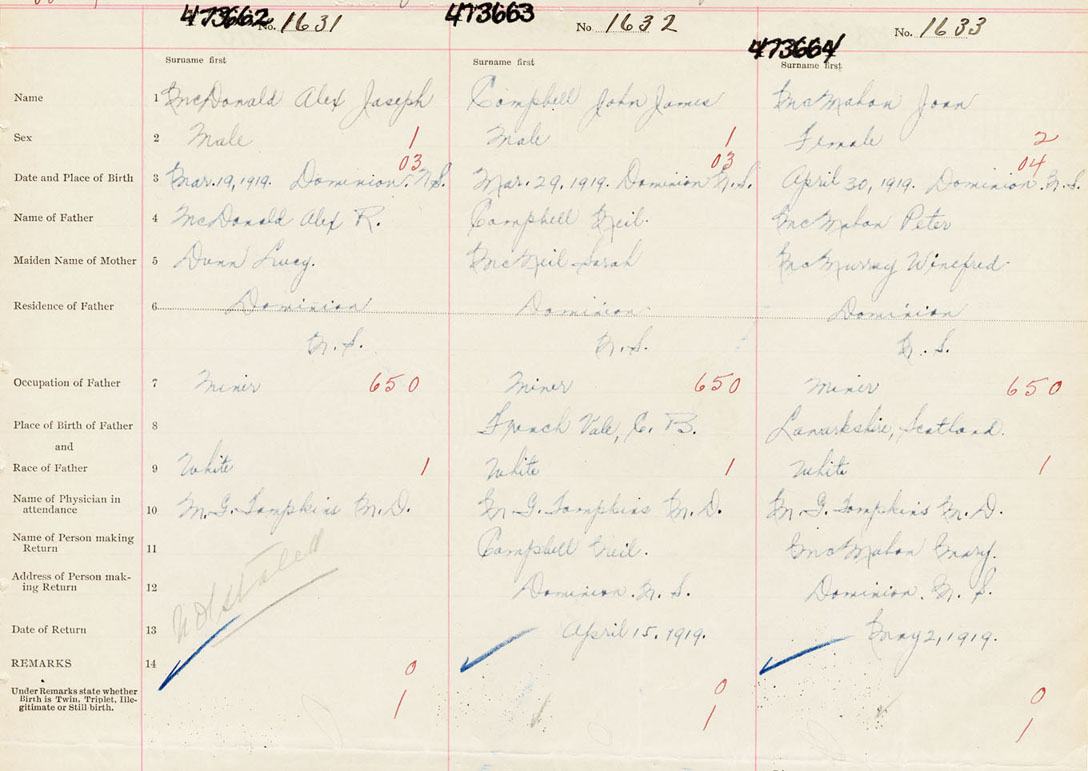 473662 No. 1631 473663 No. 1632 473664 No. 1633
Surname first Surname first Surname first
Name 1 McDonald Alex Joseph Campbell John James McMahon Joan
Sex 2 Male 1 Male 1 Female 2
03 03 04
Date and Place of Birth 3 Mar. 19, 1919. Dominion. N.S. Mar. 29, 1919. Dominion N.S. April 30, 1919. Dominion. N.S.
Name of Father 4 McDonald Alex R. Campbell Neil. McMahon Peter
Maiden Name of Mother 5 Dunn Lucy. McNeil Sarah McMurray Winefred
Residence of Father 6 Dominion Dominion Dominion
N.S. N.S. N.S.
Occupation of Father 7 Miner 650 Miner 650 Miner 650
Place of Birth of Father 8 French Vale, C. B. Lanarkshire, Scotland.
and
Race of Father 9 White 1 White 1 White 1
Name of Physician in
attendance 10 M. G. Tompkins M.D. M G. Tompkins M.D. M. G. Tompkins M.D.
Name of Person making
Return 11 Campbell Neil. McMahon Mary.
Not stated
Address of Person mak-
ing Return 12 Dominion. N.S. Dominion. N.S.
Date of Return 13 April 15. 1919. May 2, 1919.
REMARKS 14 0 0 0
Under Remarks state whether
Birth is Twin, Triplet, Ille-
gitimate or Still birth. 1 1 1